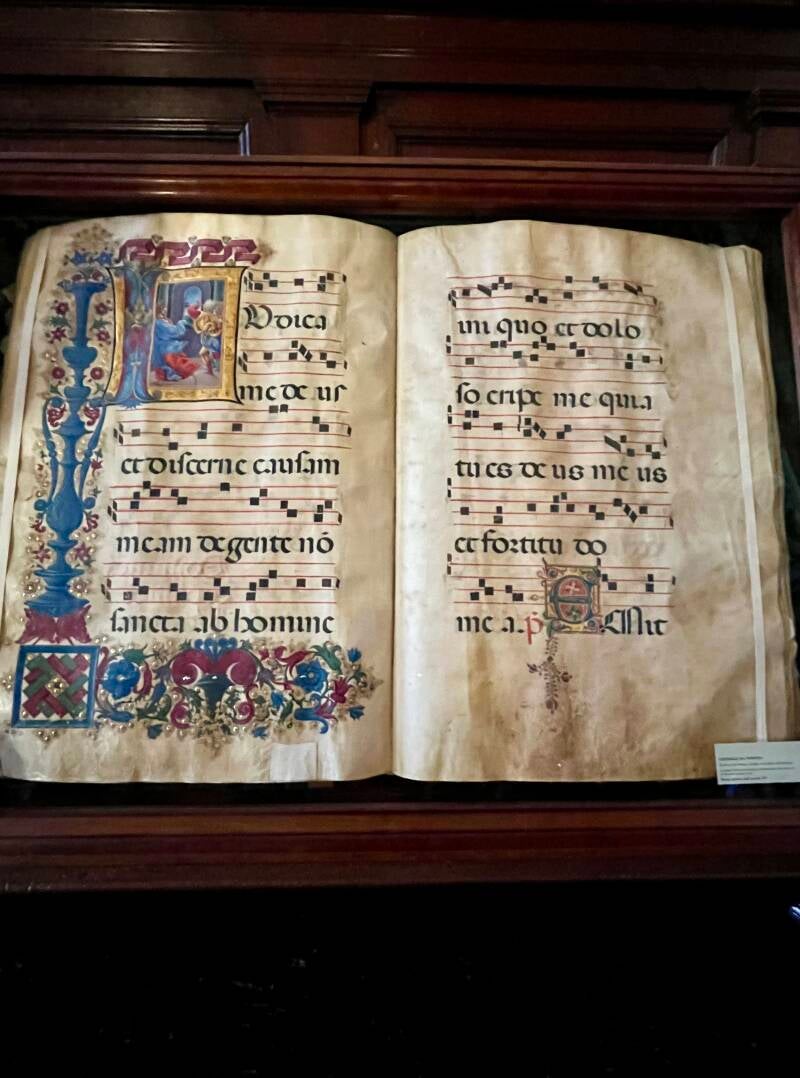 IUDICA
me de us
et discerne causam
meam de gente nō
sancta ab homine
ini quo et dolo
so eripe me quia
tu es de us me us
et fortitu do
me a. p̄ EMit